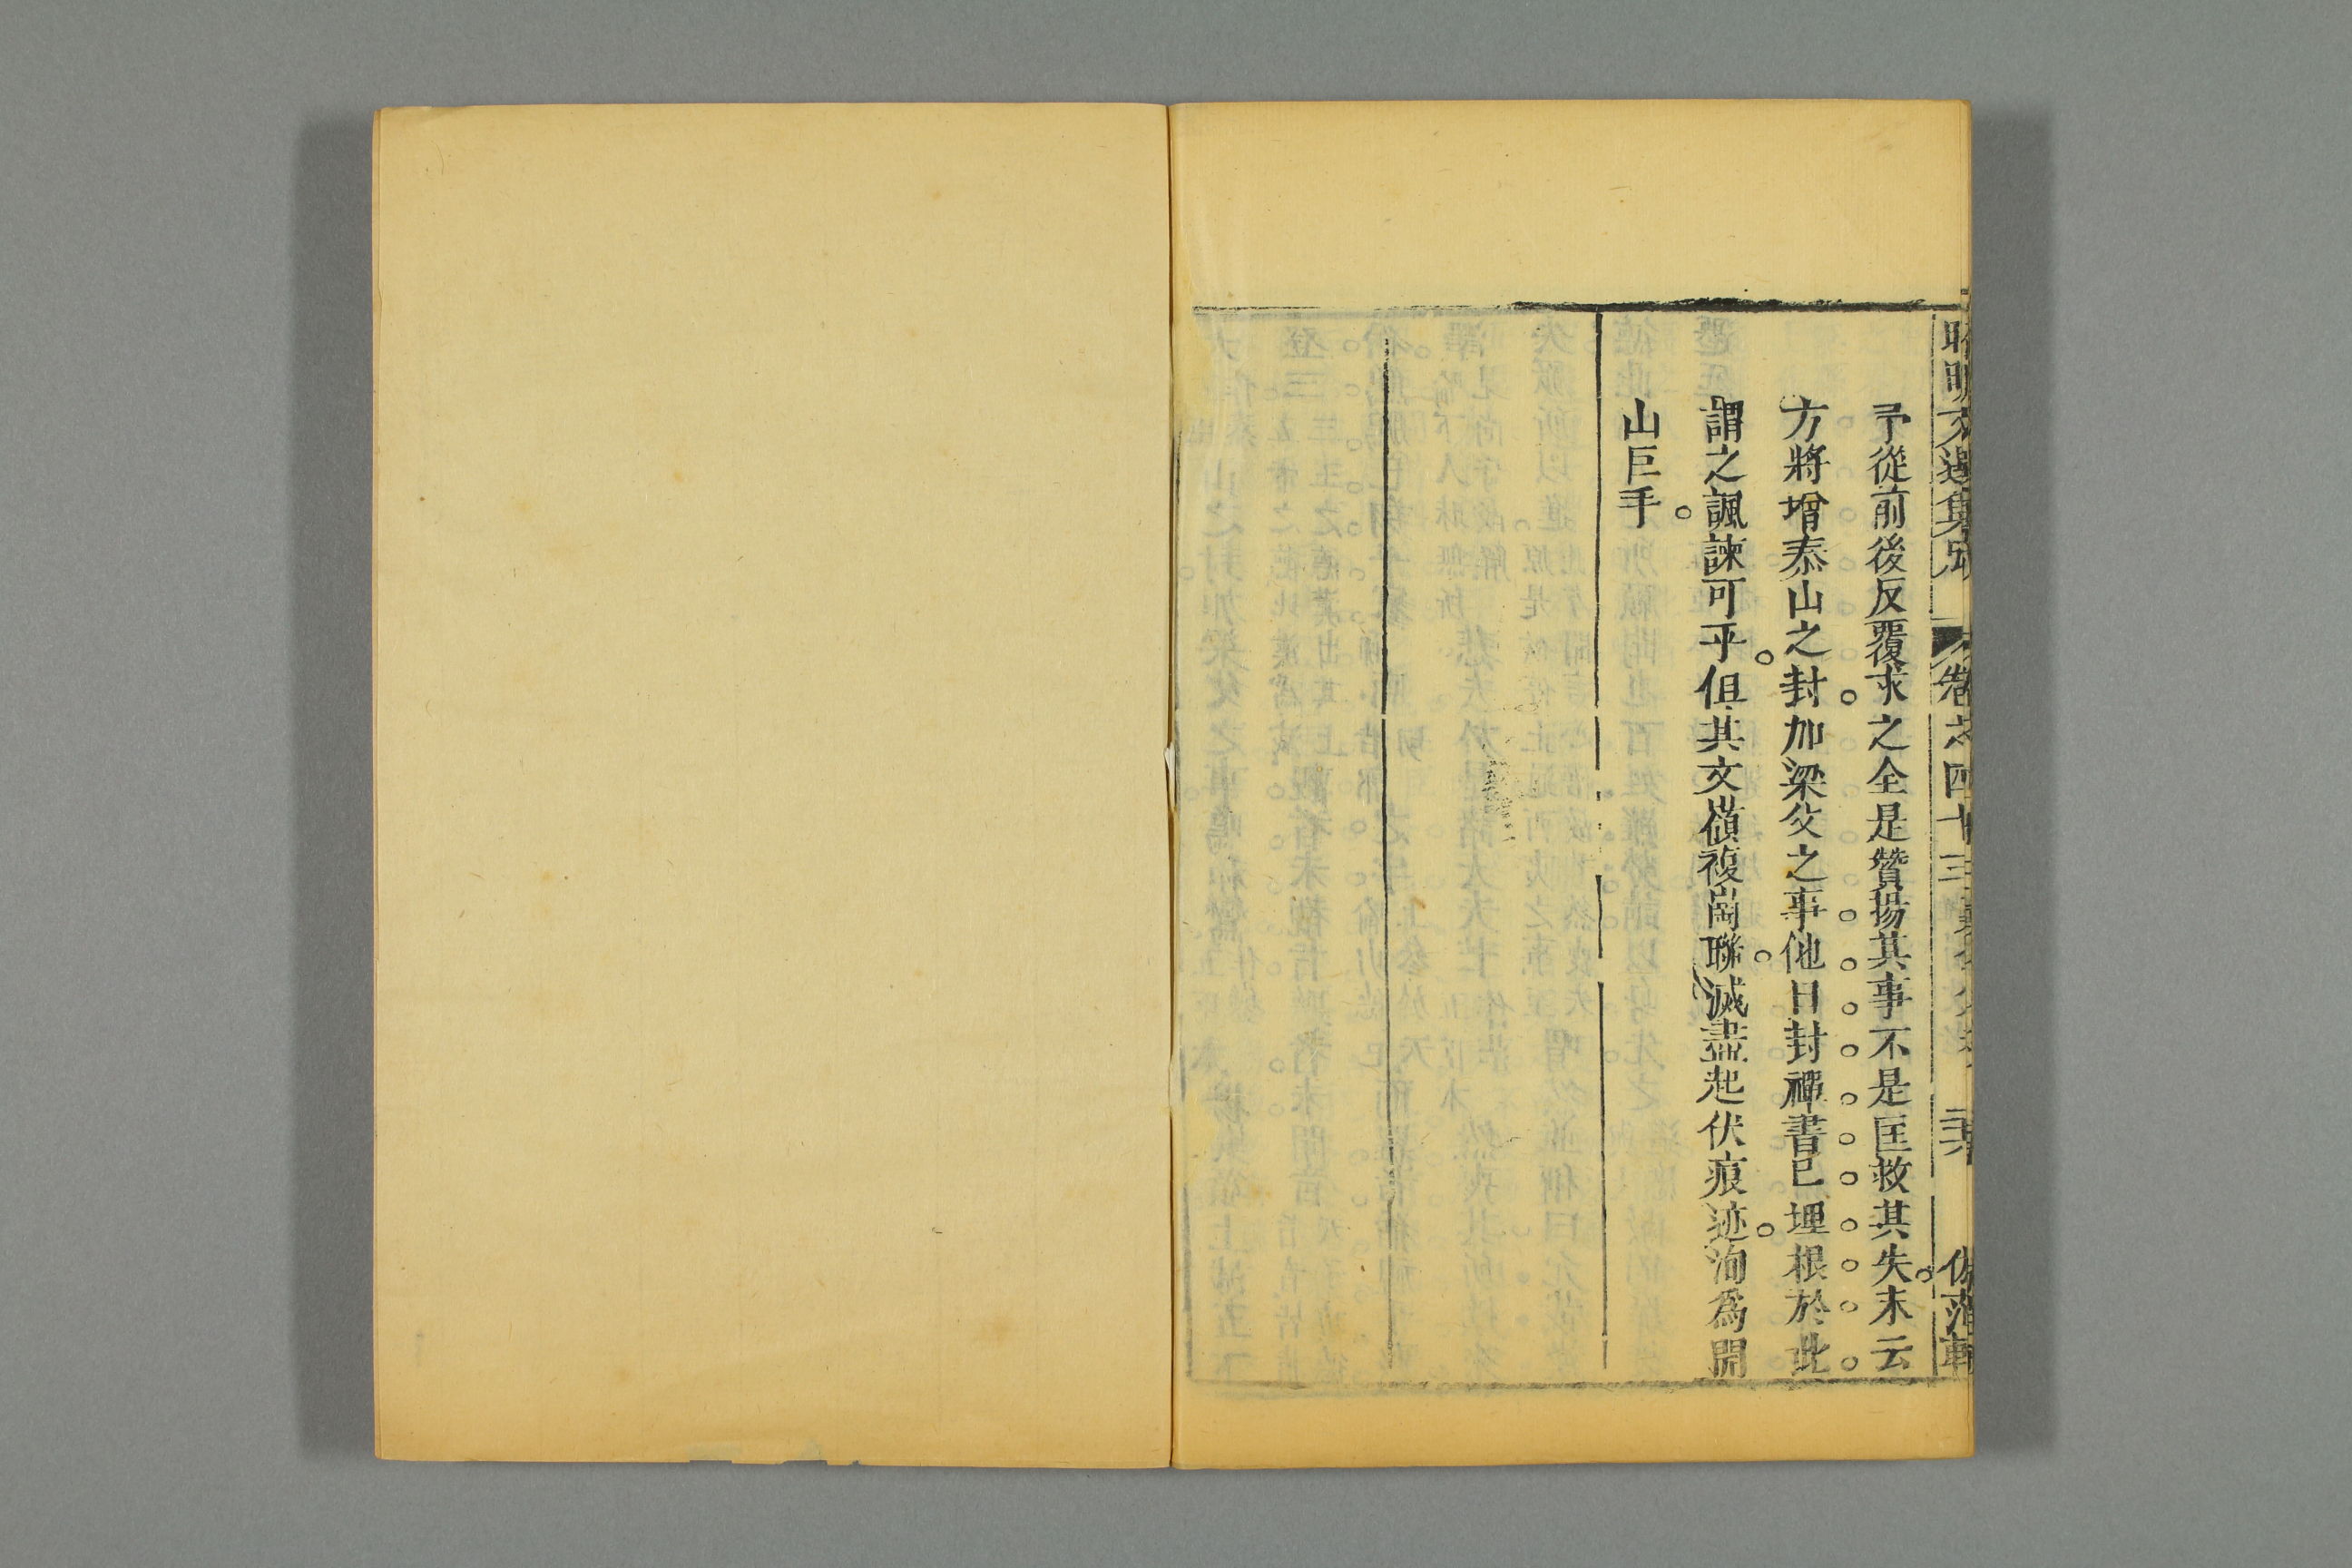 昭明文選集成 卷之四十三 倣范軒
予從前後反覆求之全是贊揚其事不是匡救其失末云
方將增泰山之封加梁父之事他日封禪書已埋根於此
謂之諷諫可乎但其文嶺複崗聯滅盡起伏痕迹洵爲開
山巨手